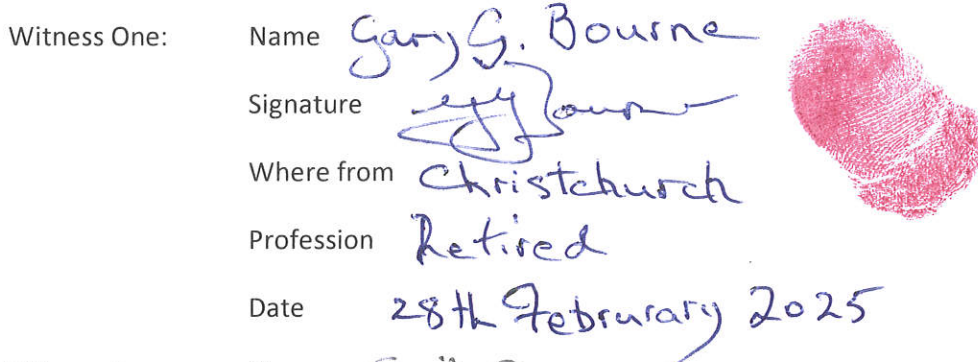 Witness One: Name Gary G. Bourne
Signature
Where from Christchurch
Profession Retired
Date 28th Februrary 2025